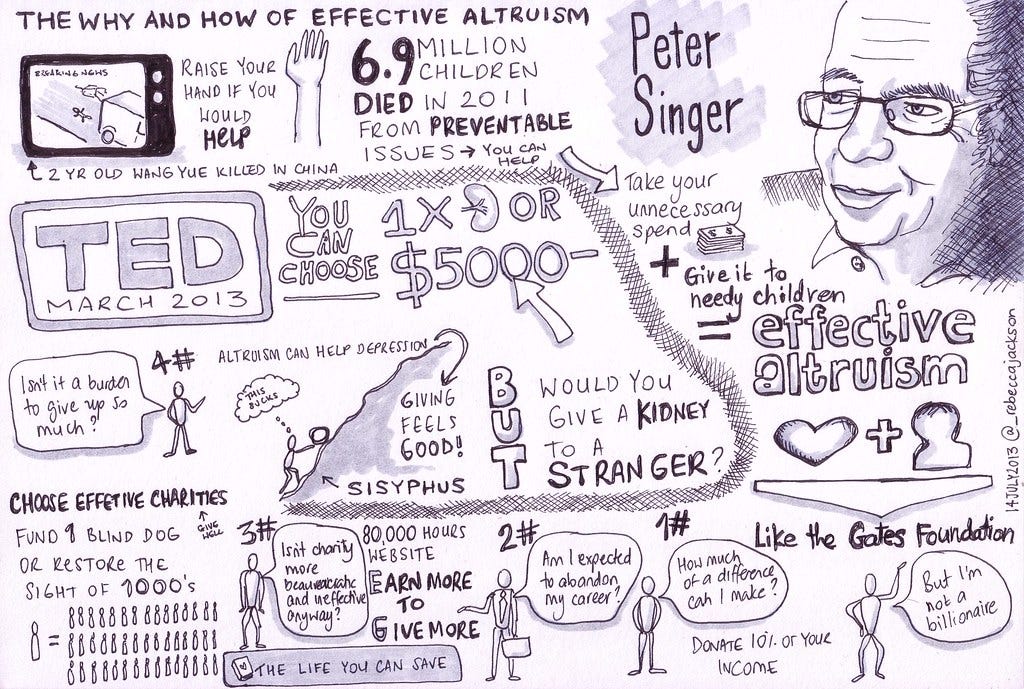 THE WHY AND HOW OF EFFECTIVE ALTRUISM
BREAKING NEWS
RAISE YOUR
HAND IF YOU
WOULD
HELP
2 YR OLD WANG YUE KILLED IN CHINA
6.9 MILLION
CHILDREN
DIED IN 2011
FROM PREVENTABLE
ISSUES → YOU CAN
HELP
Peter
Singer
Take your
unnecessary
spend
+
Give it to
needy children
=
effective
altruism
+
Like the Gates Foundation
But I'm
not a
billionaire
TED
MARCH 2013
YOU
CAN
CHOOSE
1X OR
$5000-
BUT
WOULD YOU
GIVE A KIDNEY
TO A
STRANGER?
4#
Isn't it a burden
to give up so
much?
ALTRUISM CAN HELP DEPRESSION
THIS
SUCKS
GIVING
FEELS
GOOD!
SISYPHUS
CHOOSE EFFETIVE CHARITIES
GIVE
WELL
FUND 1 BLIND DOG
OR RESTORE THE
SIGHT OF 1000's
=
3#
Isn't charity
more
beaureacratic
and ineffective
anyway?
80,000 HOURS
WEBSITE
EARN MORE
TO
GIVE MORE
THE LIFE YOU CAN SAVE
2#
Am I expected
to abandon
my career?
1#
How much
of a difference
can I make?
DONATE 10% OF YOUR
INCOME
14JULY2013 @_rebeccajackson